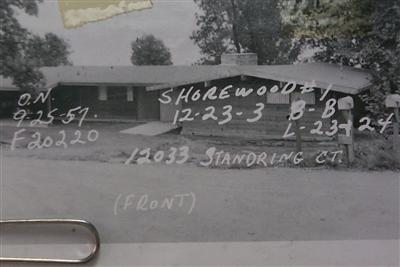 O.N.
9-25-57.
F20220
SHOREWOOD #1
12-23-3 B-B
L-23+24
12033 STANDRING CT.
(FRONT)